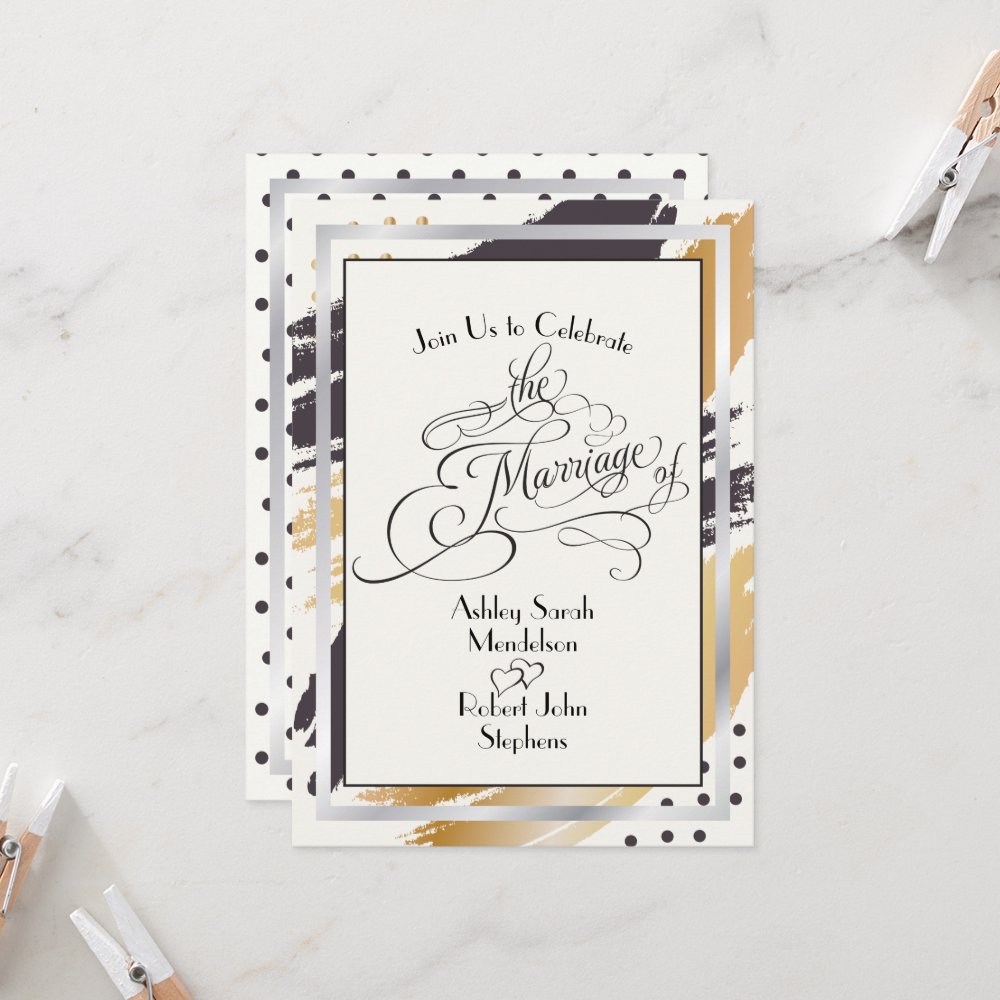 Join Us to Celebrate
the
Marriage of
Ashley Sarah
Mendelson
Robert John
Stephens